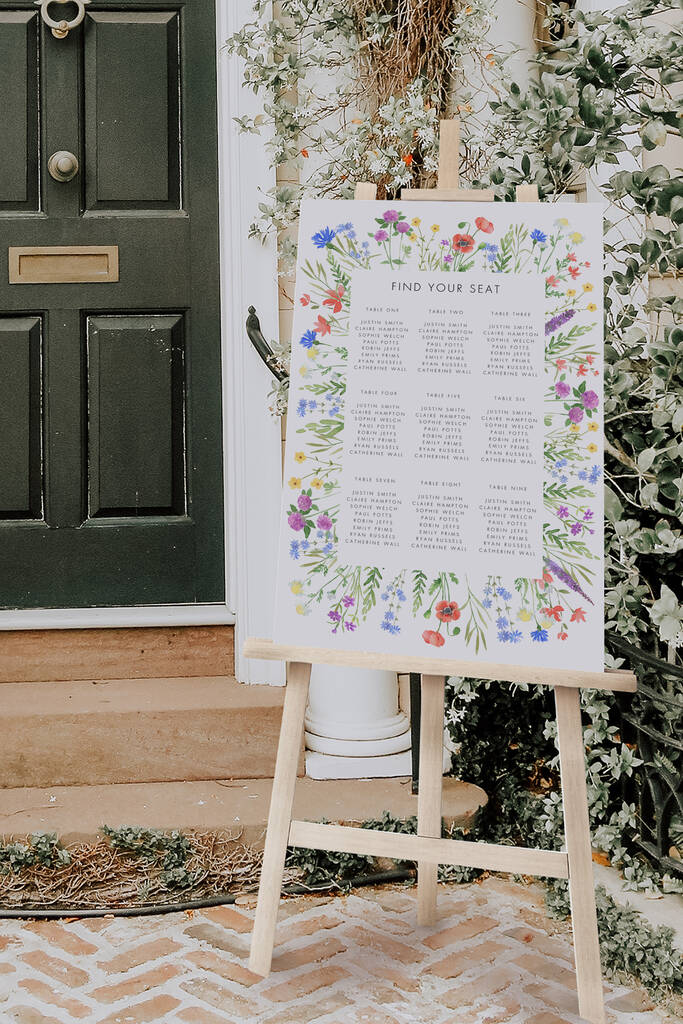 FIND YOUR SEAT
TABLE ONE
JUSTIN SMITH
CLAIRE HAMPTON
SOPHIE WELCH
PAUL POTTS
ROBIN JEFFS
EMILY PRIMS
RYAN RUSSELS
CATHERINE WALL
TABLE TWO
JUSTIN SMITH
CLAIRE HAMPTON
SOPHIE WELCH
PAUL POTTS
ROBIN JEFFS
EMILY PRIMS
RYAN RUSSELS
CATHERINE WALL
TABLE THREE
JUSTIN SMITH
CLAIRE HAMPTON
SOPHIE WELCH
PAUL POTTS
ROBIN JEFFS
EMILY PRIMS
RYAN RUSSELS
CATHERINE WALL
TABLE FOUR
JUSTIN SMITH
CLAIRE HAMPTON
SOPHIE WELCH
PAUL POTTS
ROBIN JEFFS
EMILY PRIMS
RYAN RUSSELS
CATHERINE WALL
TABLE FIVE
JUSTIN SMITH
CLAIRE HAMPTON
SOPHIE WELCH
PAUL POTTS
ROBIN JEFFS
EMILY PRIMS
RYAN RUSSELS
CATHERINE WALL
TABLE SIX
JUSTIN SMITH
CLAIRE HAMPTON
SOPHIE WELCH
PAUL POTTS
ROBIN JEFFS
EMILY PRIMS
RYAN RUSSELS
CATHERINE WALL
TABLE SEVEN
JUSTIN SMITH
CLAIRE HAMPTON
SOPHIE WELCH
PAUL POTTS
ROBIN JEFFS
EMILY PRIMS
RYAN RUSSELS
CATHERINE WALL
TABLE EIGHT
JUSTIN SMITH
CLAIRE HAMPTON
SOPHIE WELCH
PAUL POTTS
ROBIN JEFFS
EMILY PRIMS
RYAN RUSSELS
CATHERINE WALL
TABLE NINE
JUSTIN SMITH
CLAIRE HAMPTON
SOPHIE WELCH
PAUL POTTS
ROBIN JEFFS
EMILY PRIMS
RYAN RUSSELS
CATHERINE WALL